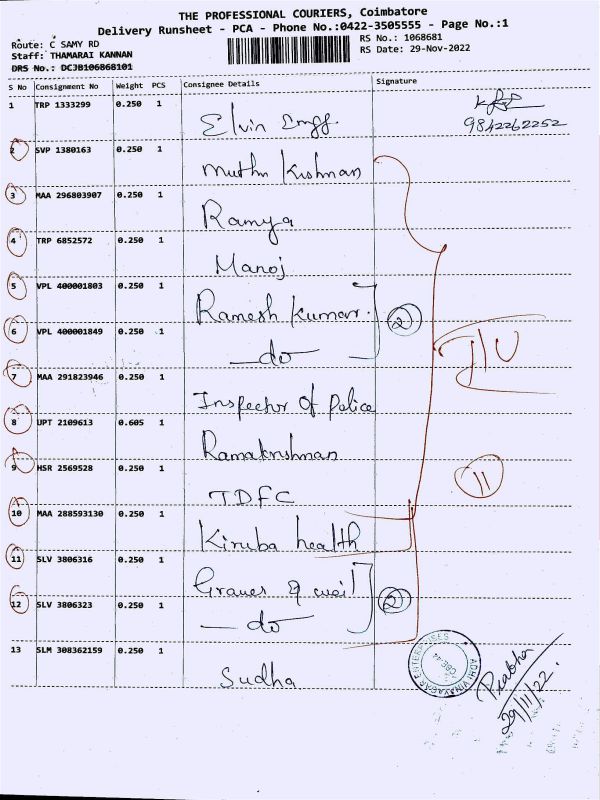 THE PROFESSIONAL COURIERS, Coimbatore
Delivery Runsheet - PCA - Phone No.:0422-3505555 - Page No.:1
Route: C SAMY RD
RS No.: 1068681
Staff: THAMARAI KANNAN
RS Date: 29-Nov-2022
DRS No.: DCJB106868101
S No Consignment No Weight PCS Consignee Details Signature
1 TRP 1333299 0.250 1 Elvin Engg. 9842262252
2 SVP 1380163 0.250 1 Muthu Krishnan
3 MAA 296803907 0.250 1 Ramya
4 TRP 6852572 0.250 1 Manoj
5 VPL 400001803 0.250 1 Ramesh Kumar.
2
6 VPL 400001849 0.250 1 —do—
I/U
7 MAA 291823946 0.250 1 Inspector Of Police
8 UPT 2109613 0.605 1 Ramakrishnan
9 HSR 2569528 0.250 1 TDFC
11
10 MAA 288593130 0.250 1 Kiruba health
11 SLV 3806316 0.250 1 Graues &
2
12 SLV 3806323 0.250 1 —do—
13 SLM 308362159 0.250 1 Sudha
ADHI VINAYAGAR ENTERPRISES
CBE-44
Prabhu
29/11/22.